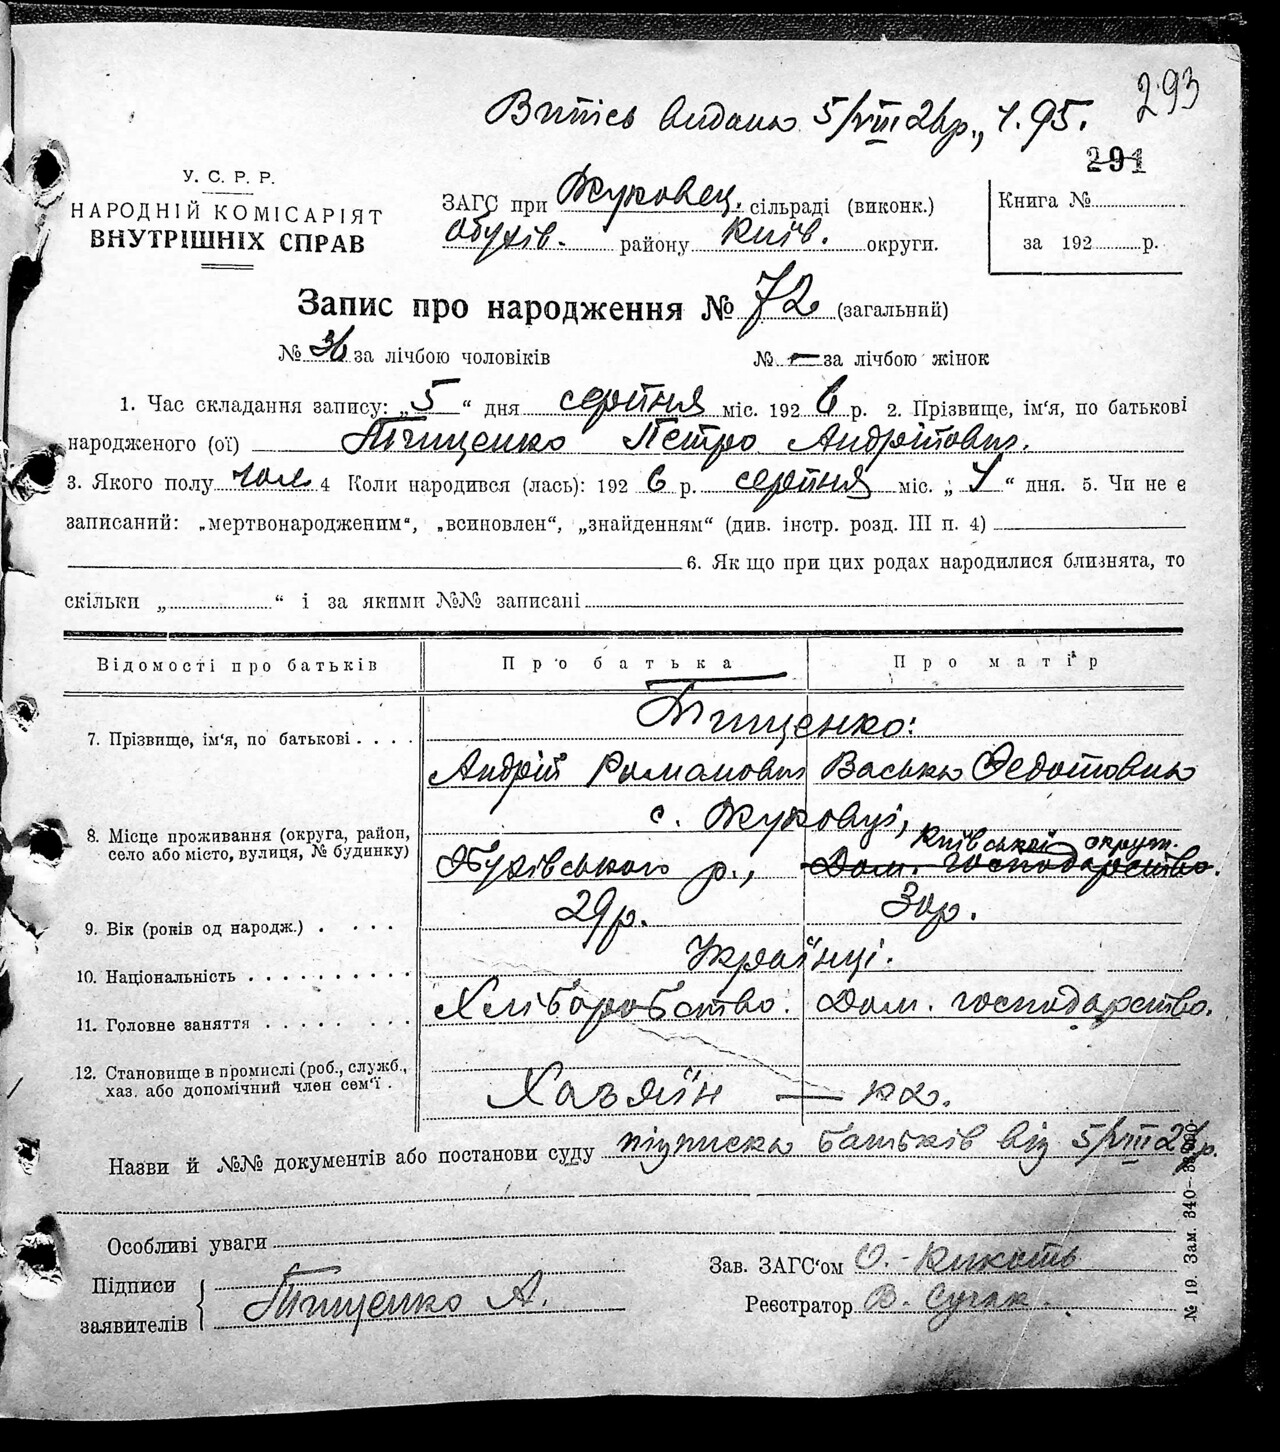 293
Витісь видано 5/VIII 26р., ч. 95.
291
У. С. Р. Р.
НАРОДНІЙ КОМІСАРІЯТ
ВНУТРІШНІХ СПРАВ
ЗАГС при Жуковец. сільраді (виконк.)
Обухів. району Київ. округи.
Книга №
за 192 р.
Запис про народження № 72 (загальний)
№ 36 за лічбою чоловіків № – за лічбою жінок
1. Час складання запису: „5“ дня серпня міс. 1926 р. 2. Прізвище, ім'я, по батькові
народженого (ої) Тищенко Петро Андрійович.
3. Якого полу чол. 4 Коли народився (лась): 1926 р. серпня міс. „1“ дня. 5. Чи не є
записаний: „мертвонародженим“, „всиновлен“, „знайденням“ (див. інстр. розд. III п. 4)
6. Як що при цих родах народилися близнята, то
скільки „ “ і за якими №№ записані
Відомості про батьків Про батька Про матір
7. Прізвище, ім'я, по батькові . . . . Тищенко:
Андрій Романович Васька Федотовна
8. Місце проживання (округа, район,
село або місто, вулиця, № будинку)
с. Жуковці,
Київської округ.
Обухівського р., Дом. господарство.
9. Вік (років од народж.) . . . . 29р. 30р.
10. Національність . . . . . . . . . . Українці.
11. Головне заняття . . . . . . . . . Хліборобство. Дом. господарство.
12. Становище в промислі (роб., служб.,
хаз. або допомічний член сем'ї .
Хазяїн — ка.
Назви й №№ документів або постанови суду підписка батьків від 5/VIII 26р.
Особливі уваги
Підписи
заявителів
Тищенко А.
Зав. ЗАГС'ом
Реєстратор В. Сугак.
№ 19. Зам. 340–